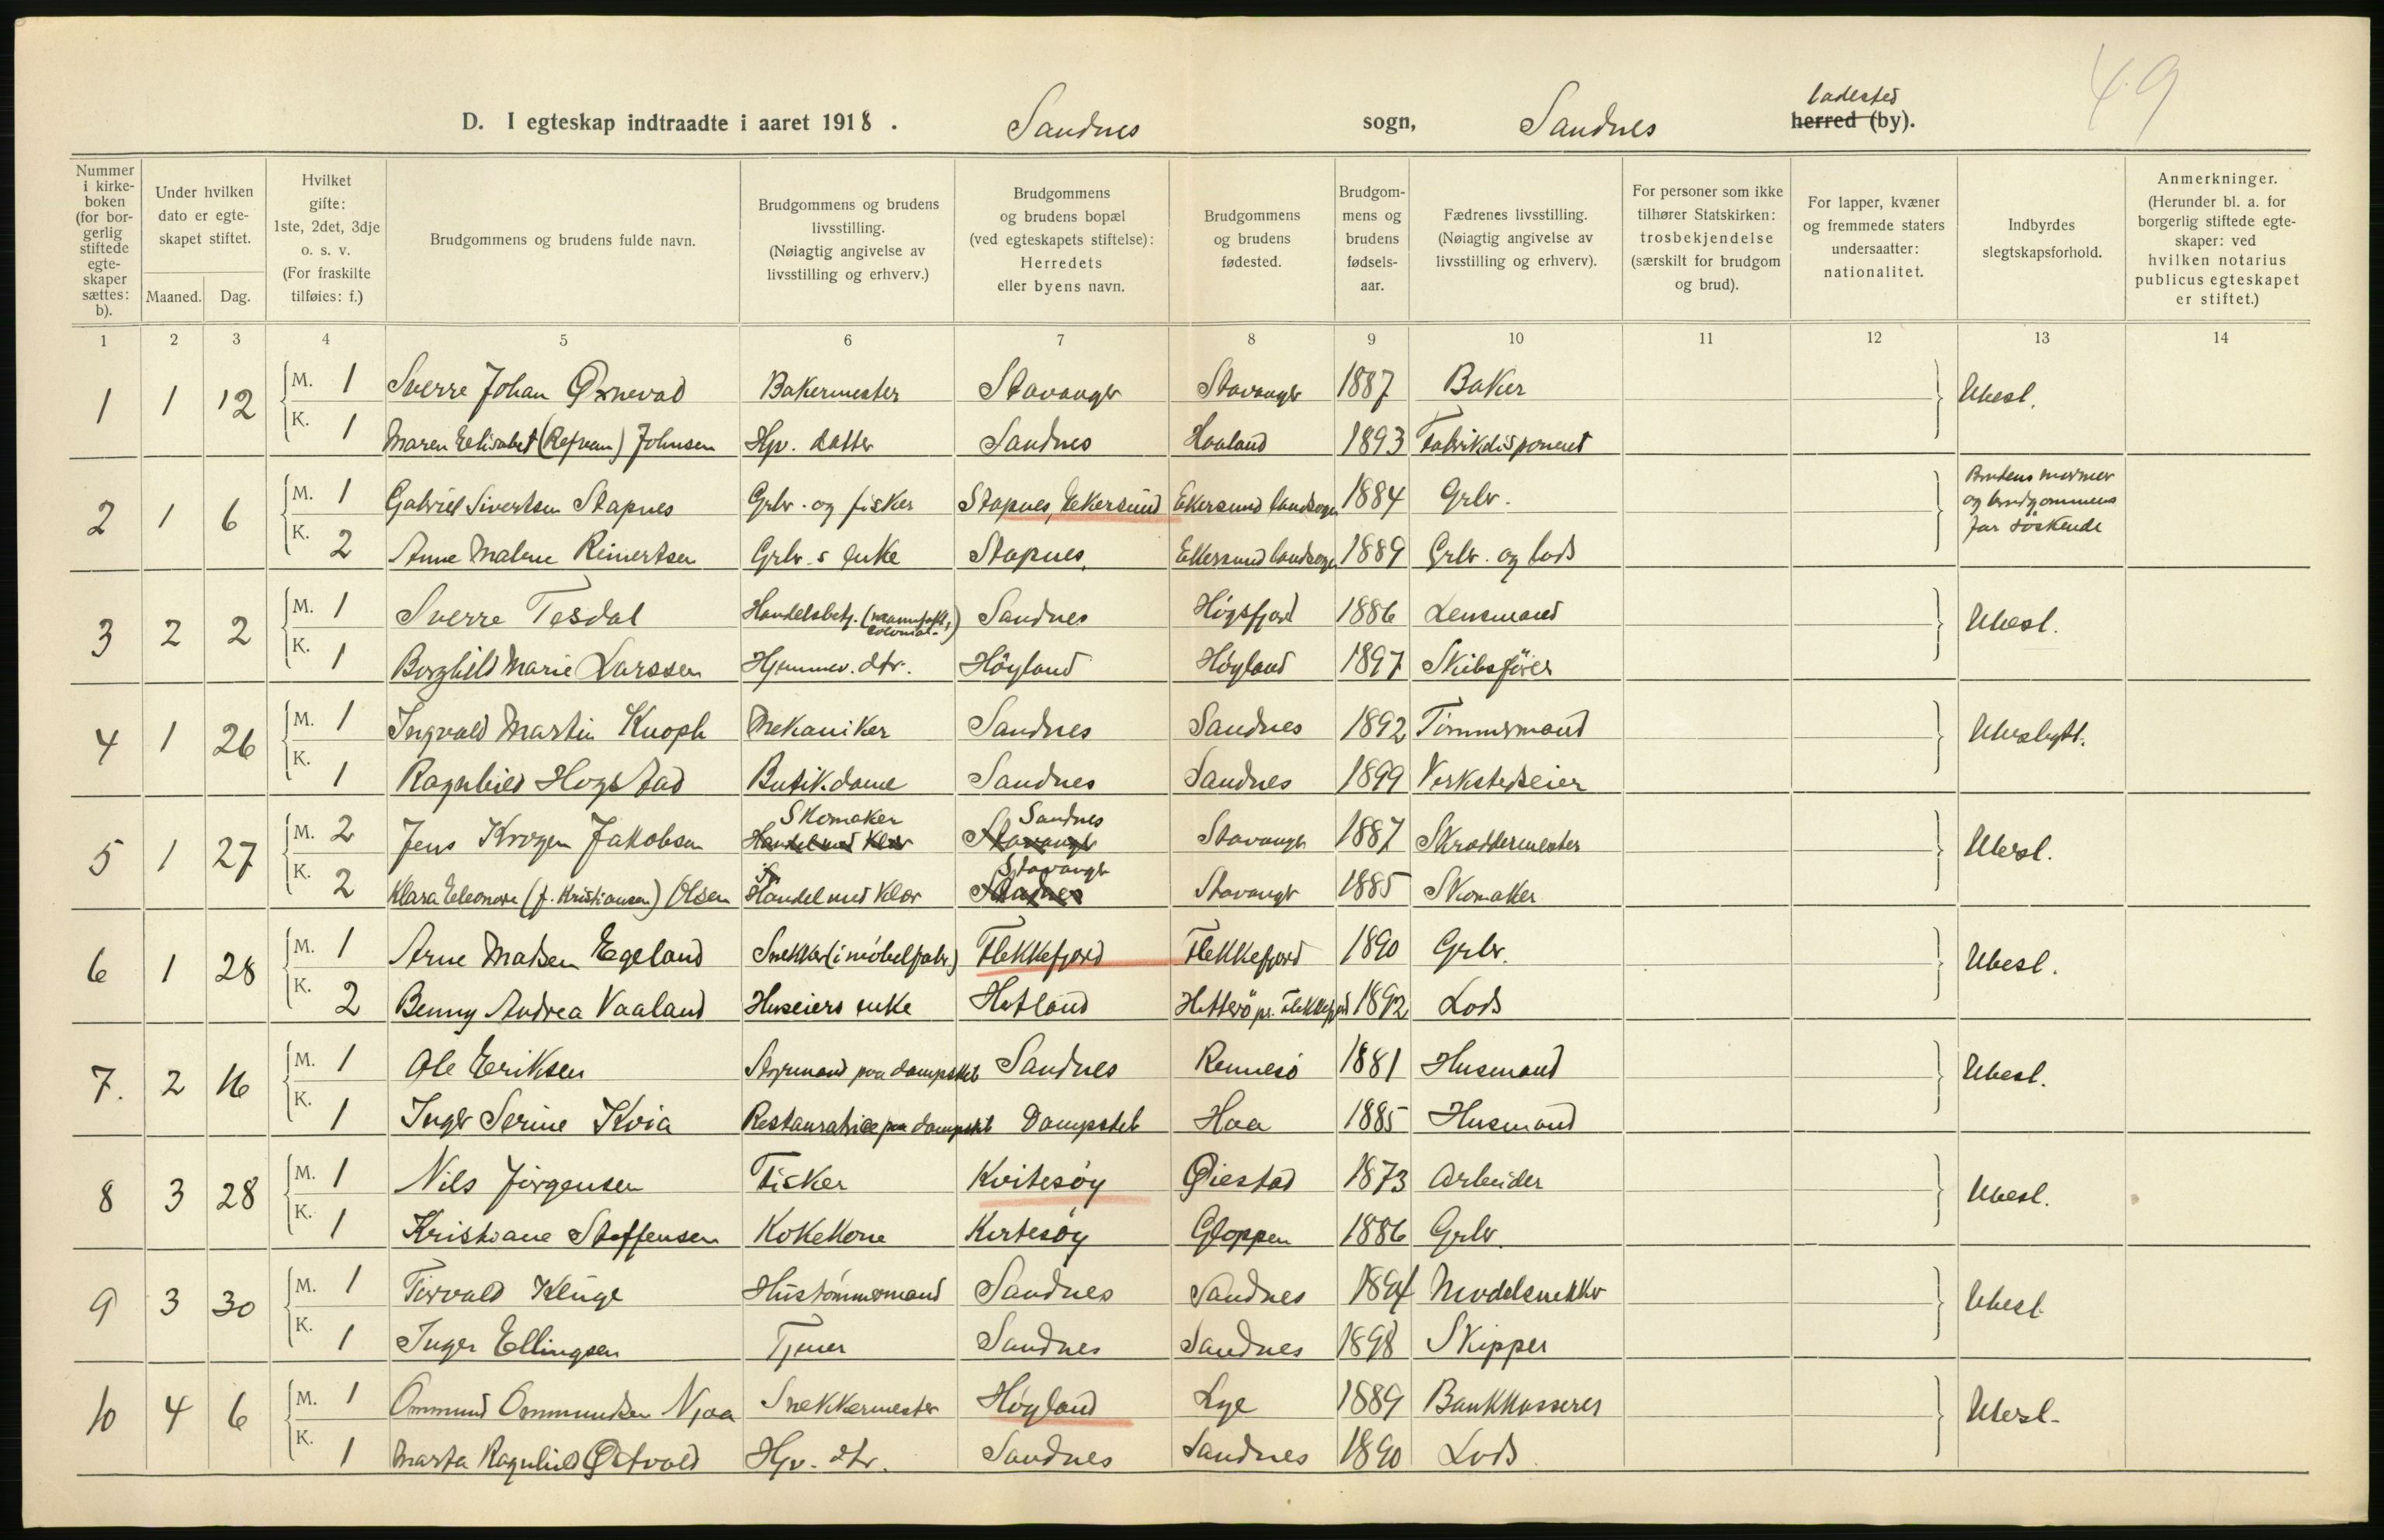 49
D. I egteskap indtraadte i aaret 1918. Sandnes sogn, Sandnes ladested herred (by).
Nummer i kirkeboken (for borgerlig stiftede egteskaper sættes: b).
Under hvilken dato er egteskapet stiftet.
Maaned. Dag.
Hvilket gifte: 1ste, 2det, 3dje o. s. v. (For fraskilte tilføies: f.)
Brudgommens og brudens fulde navn.
Brudgommens og brudens livsstilling. (Nøiagtig angivelse av livsstilling og erhverv.)
Brudgommens og brudens bopæl (ved egteskapets stiftelse): Herredets eller byens navn.
Brudgommens og brudens fødested.
Brudgommens og brudens fødselsaar.
Fædrenes livsstilling. (Nøiagtig angivelse av livsstilling og erhverv).
For personer som ikke tilhører Statskirken: trosbekjendelse (særskilt for brudgom og brud).
For lapper, kvæner og fremmede staters undersaatter: nationalitet.
Indbyrdes slegtskapsforhold.
Anmerkninger. (Herunder bl. a. for borgerlig stiftede egteskaper: ved hvilken notarius publicus egteskapet er stiftet.)
1 2 3 4 5 6 7 8 9 10 11 12 13 14
1 1 12 M. 1 Sverre Johan Ørnevad Bakermester Stavanger Stavanger 1887 Baker Ubesl.
K. 1 Maren Elisabet (Refvem) Johnsen Hjv. datter Sandnes Haaland 1893 Fabrikdisponent
2 1 6 M. 1 Gabriel Sivertsen Stapnes Grbr. og fisker Stapnes, Ekersund Ekersund landsogn 1884 Grbr. Brudens mormor og brudgommens far söskende
K. 2 Anne Malene Reinertsen Grbr.s enke Stapnes. Ekersund landsogn 1889 Grbr. og lods
3 2 2 M. 1 Sverre Tesdal Handelsbetj. (manufakt., kolonial.) Sandnes Högsfjord 1886 Lensmand Ubesl.
K. 1 Borghild Marie Larssen Hjemmev. dtr. Höyland Höyland 1897 Skibsförer
4 1 26 M. 1 Ingvald Martin Knoph Mekaniker Sandnes Sandnes 1892 Tömmermand Ubeslegt.
K. 1 Ragnhild Hogstad Butik.dame Sandnes Sandnes 1899 Verkstedseier
5 1 27 M. 2 Jens Krogen Jakobsen Skomaker Handel med Klær Sandnes Stavanger Stavanger 1887 Skreddermester Ubesl.
K. 2 Klara Eleonore (f. Kristiansen) Olsen Handel med klær Stavanger Sandnes Stavanger 1885 Skomaker
6 1 28 M. 1 Arne Madsen Egeland Snekker (i möbelfabr.) Flekkefjord Flekkefjord 1890 Grbr. Ubesl.
K. 2 Benny Andrea Vaaland Huseiers enke Hetland Hitterö pr. Flekkefjord 1892 Lods
7. 2 16 M. 1 Ole Eriksen Styrmand paa dampskib Sandnes Rennesö 1881 Husmand Ubesl.
K. 1 Inger Serine Kvia Restauratrice paa dampskib Dampskib Haa 1885 Husmand
8 3 28 M. 1 Nils Jörgensen Fisker Kvitesöy Øiestad 1873 Arbeider Ubesl.
K. 1 Kristiane Steffensen Kokekone Kvitesöy Gloppen 1886 Grbr.
9 3 30 M. 1 Torvald Kluge Hustömmermand Sandnes Sandnes 1894 Modelsnekker Ubesl.
K. 1 Inger Ellingsen Tjener Sandnes Sandnes 1898 Skipper
10 4 6 M. 1 Ommund Ommundsen Njaa Snekkermester Höyland Lye 1889 Bankkasserer Ubesl.
K. 1 Marta Ragnhild Østvold Hjv. dtr. Sandnes Sandnes 1890 Lods